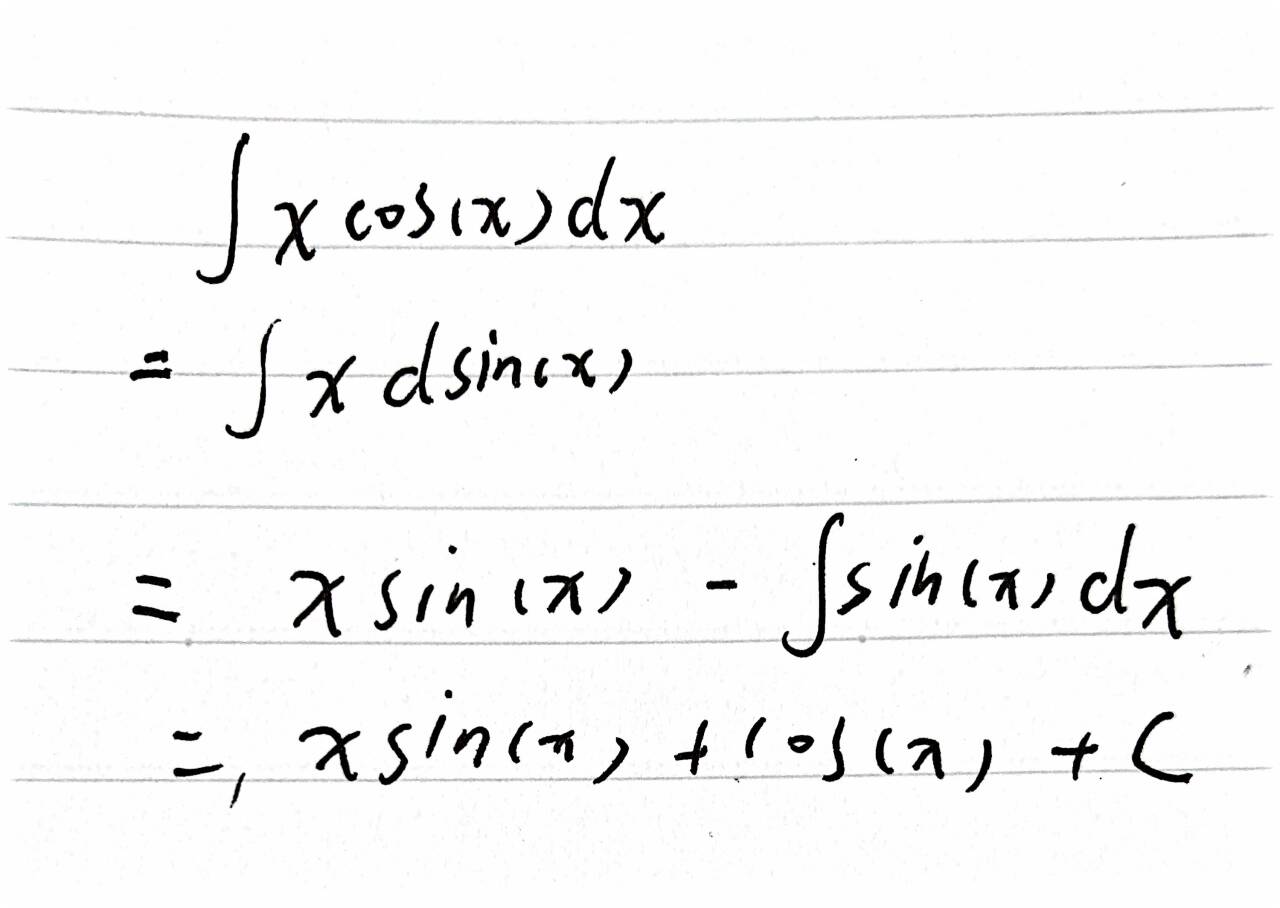 ∫ x cos(x) dx
= ∫ x d sin(x)
= x sin(x) - ∫ sin(x) dx
= x sin(x) + cos(x) + C